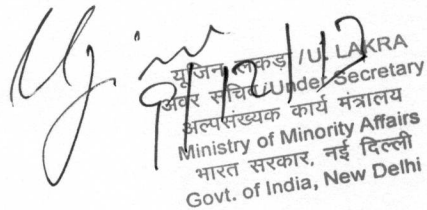 9/12/12
यूजिन लकड़ा /U. LAKRA
अवर सचिव/Under Secretary
अल्पसंख्यक कार्य मंत्रालय
Ministry of Minority Affairs
भारत सरकार, नई दिल्ली
Govt. of India, New Delhi